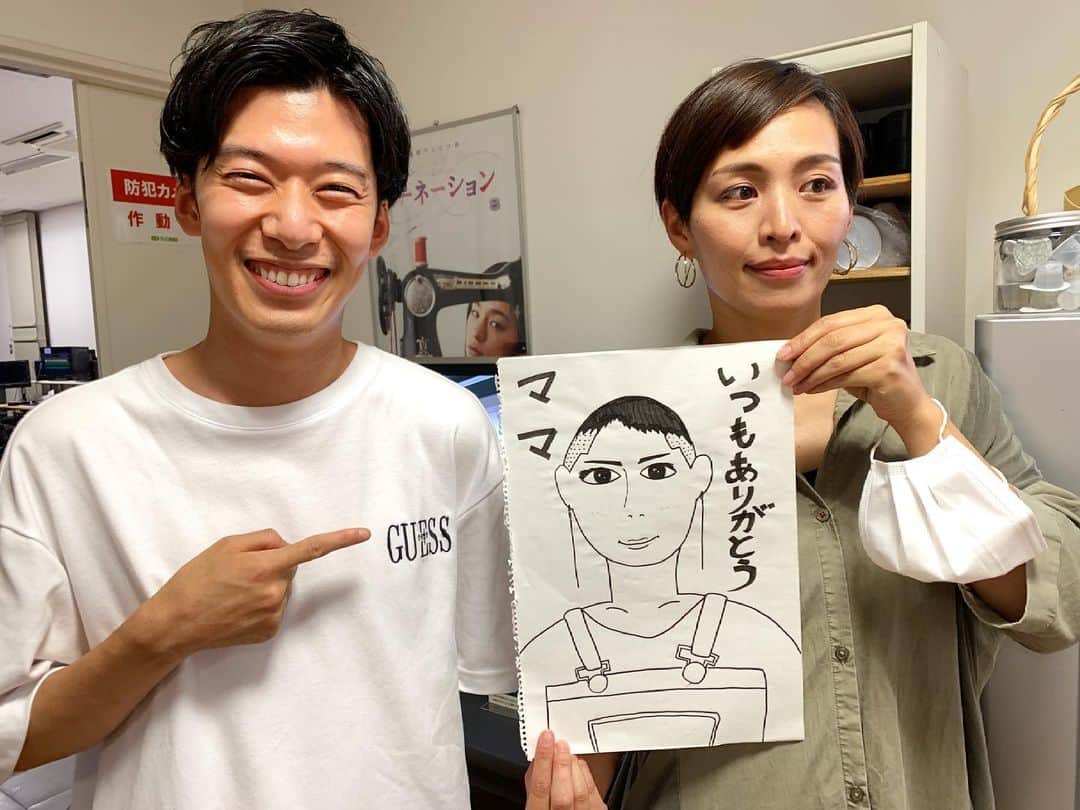 防犯カメ
作動
ーネーション
GUESS
いつもありがとう
ママ